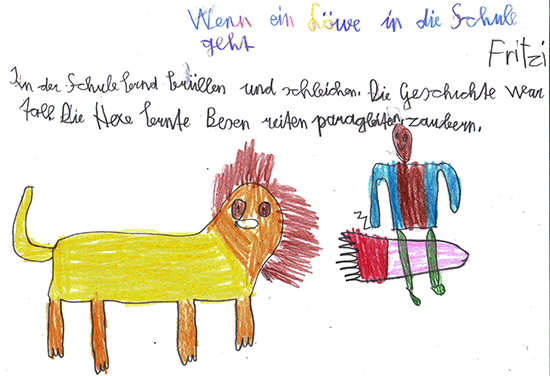 Wenn ein Löwe in die Schule
geht
Fritzi
In der Schule lernd brüllen und schleichen. Die Geschichte war
toll Die Hexe lernte Besen reiten paragleiten, zaubern.